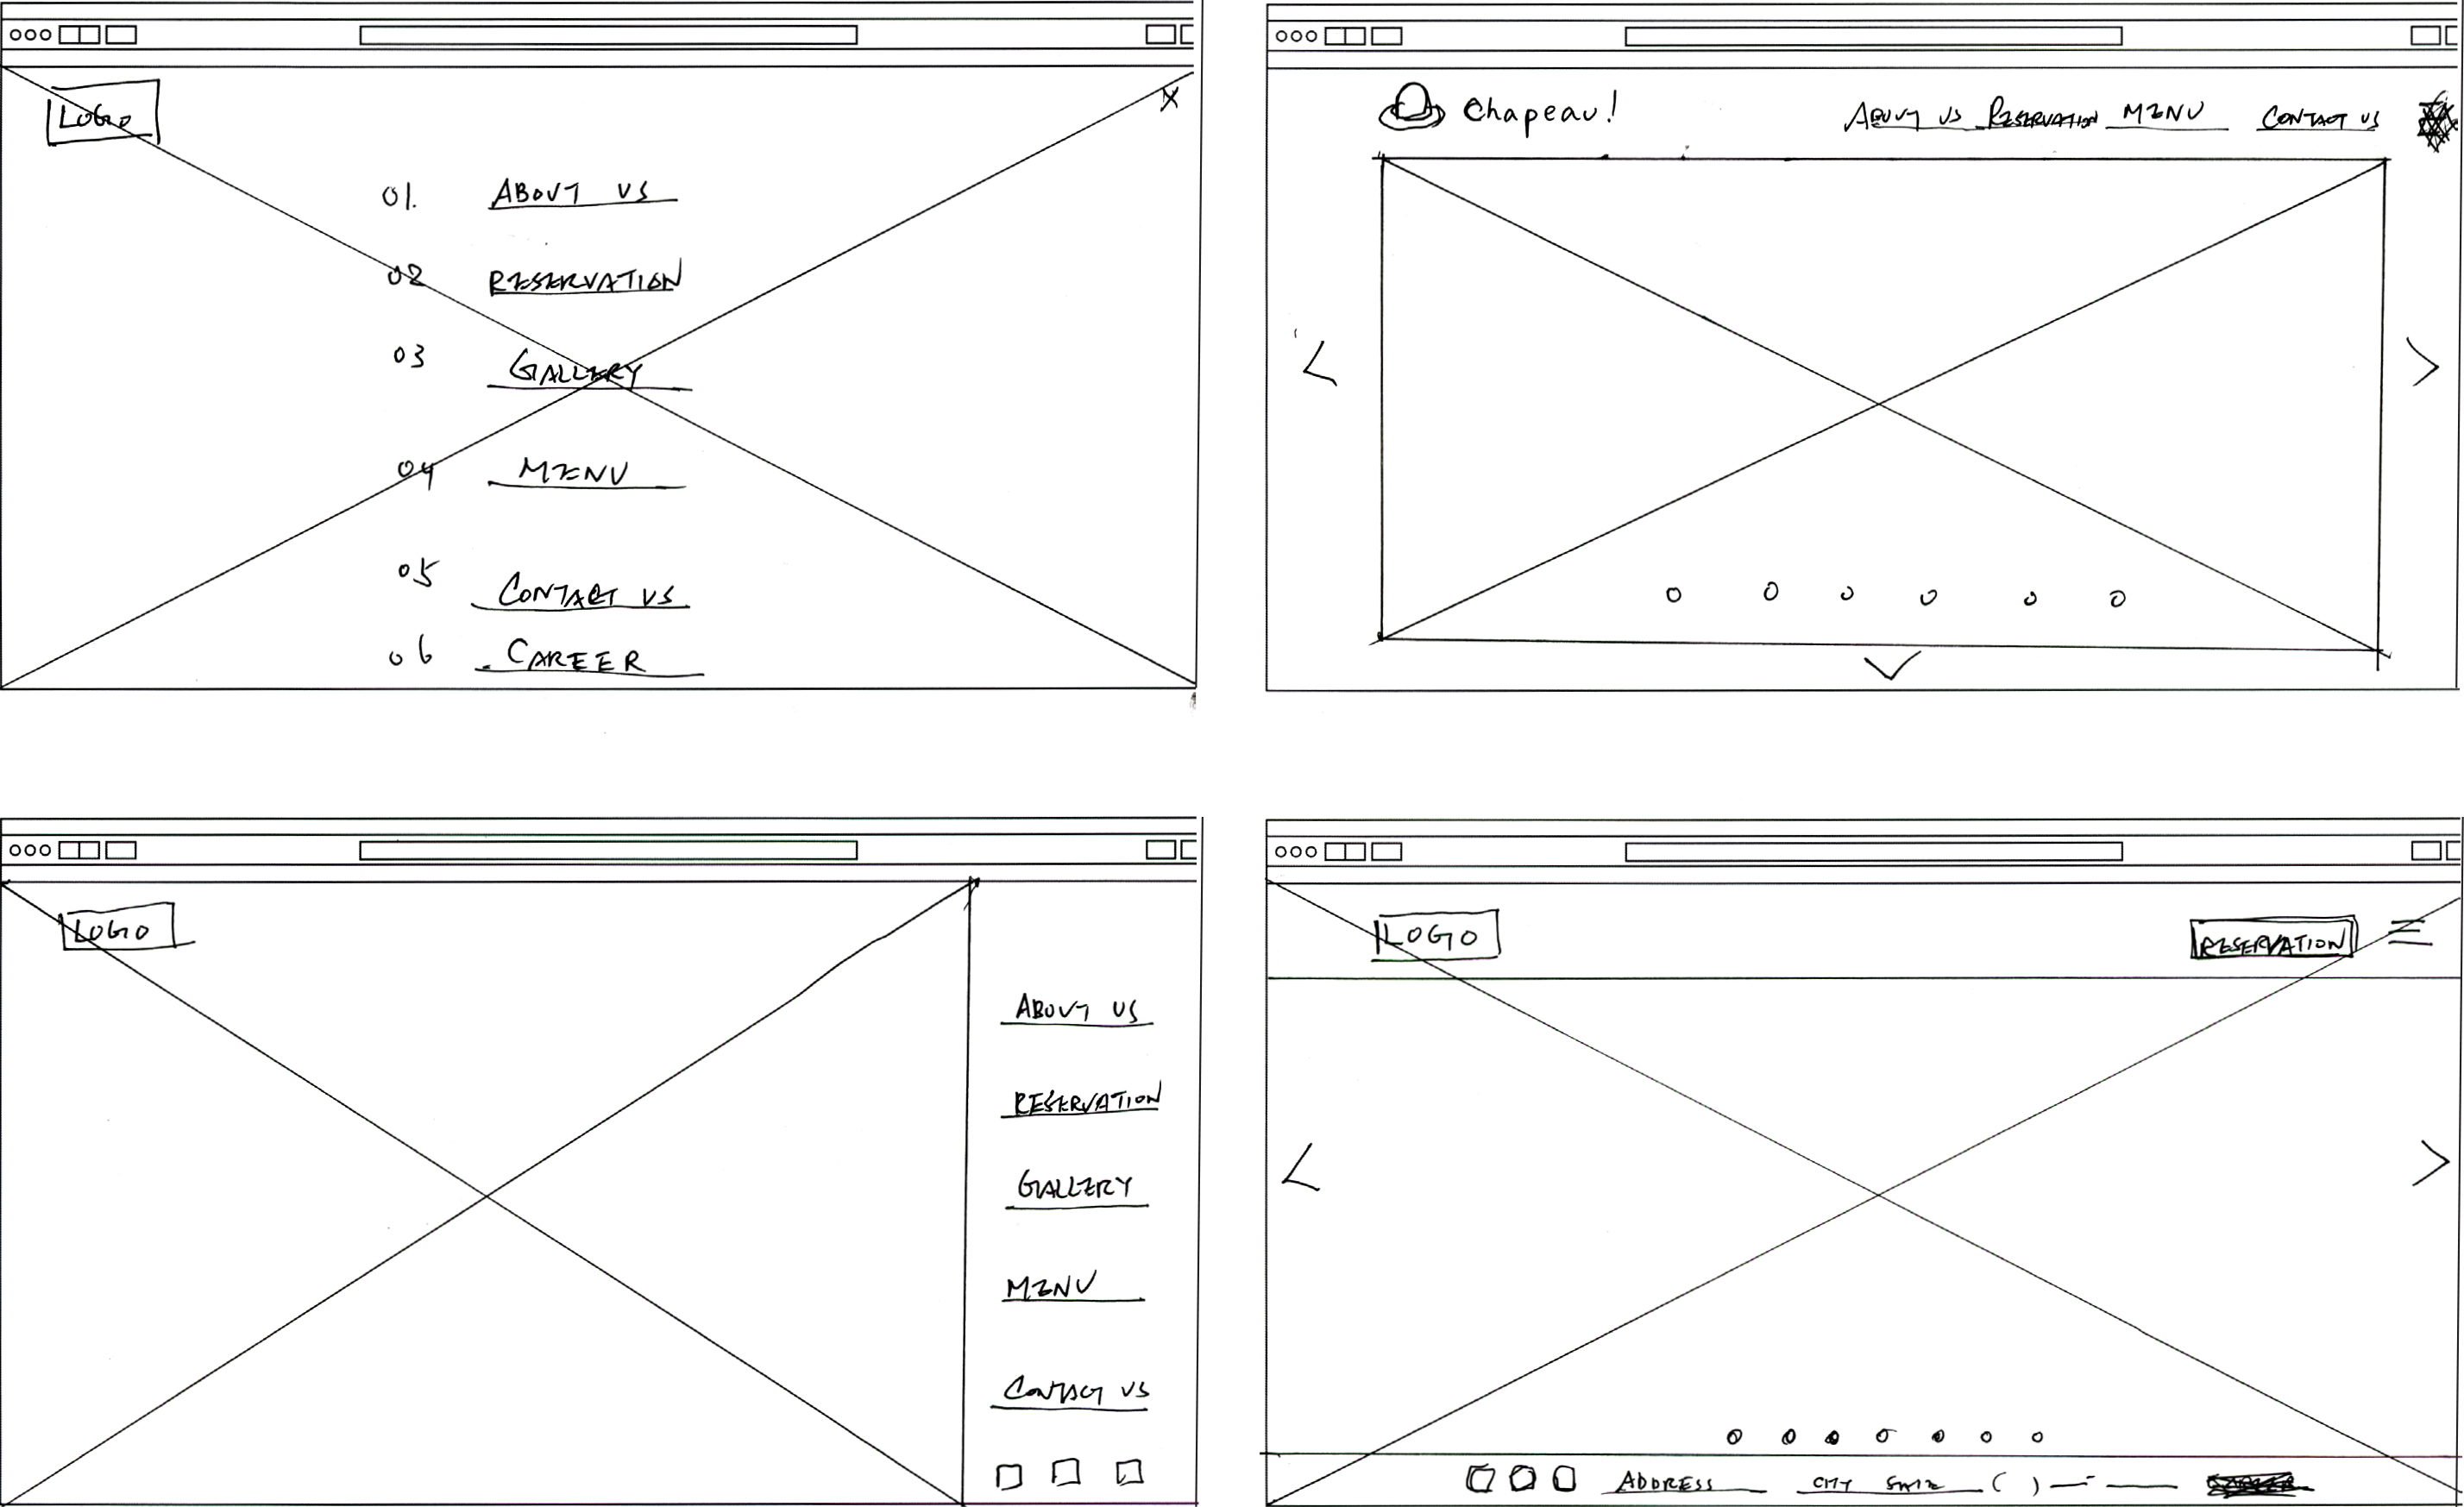 LOGO
X
01. ABOUT US
02 RESERVATION
03 GALLERY
04 MENU
05 CONTACT US
06 CAREER
Chapeau! ABOUT US RESERVATION MENU CONTACT US
LOGO
ABOUT US
RESERVATION
GALLERY
MENU
CONTACT US
LOGO RESERVATION
ADDRESS CITY STATE ( ) — - —